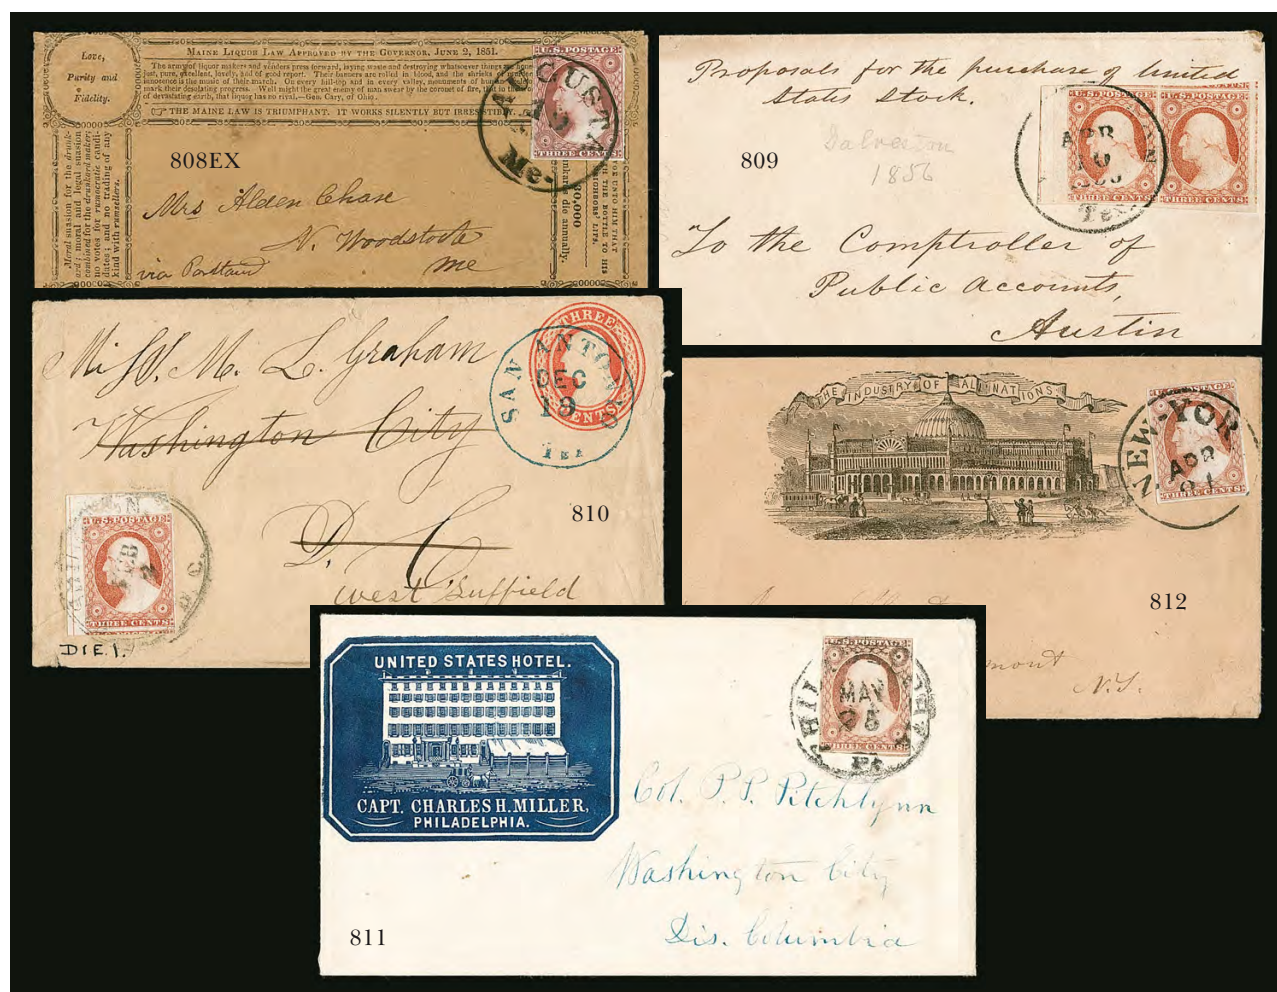 Love,
Purity and
Fidelity.
MAINE LIQUOR LAW APPROVED BY THE GOVERNOR, JUNE 2, 1851.
The army of liquor makers and venders press forward, laying waste and destroying whatsoever things are
just, pure, excellent, lovely, and of good report. Their banners are rolled in blood, and the shrieks of
supension is the music of their march. On every hill-top and in every valley, monuments of
mark their desolating progress. Well might the great enemy of man swear by the coronet of fire, that
of devastating earth, that liquor has no rival.—Gen. Cary, of Ohio.
☞ THE MAINE LAW IS TRIUMPHANT. IT WORKS SILENTLY BUT
Moral suasion for the drunk-
ard; moral and legal suasion
combined for the drunkard maker;
no votes for rumocratic candi-
dates; and no trading of any
kind with rumsellers.
30,000
die annually.
UNTO HIM THAT
THE BOTTLE TO HIS
NEIGHBORS' LIPS.
U.S. POSTAGE
THREE CENTS
AUGUSTA
Me.
808EX
Mrs Alden Chase
N. Woodstock
Me
via Portland
Proposals for the purchase of United
States Stock.
Galveston
1856
809
U.S. POSTAGE
THREE CENTS
U.S. POSTAGE
THREE CENTS
APR
10
Tex.
To the Comptroller of
Public Accounts,
Austin
W. M. L. Graham
Washington City
D. C.
West Suffield
THREE
CENTS
SAN ANTONIO
DEC
19
Tex
810
U.S. POSTAGE
THREE CENTS
FEB
D.C.
DIE 1.
THE INDUSTRY OF ALL NATIONS
POSTAGE
THREE CENTS
NEW-YOR
APR
812
mont
N.Y.
UNITED STATES HOTEL.
CAPT. CHARLES H. MILLER,
PHILADELPHIA.
U.S. POSTAGE
THREE CENTS
MAY
25
Pa
Col. P. P. Pitchlynn
Washington City
Dis. Columbia
811